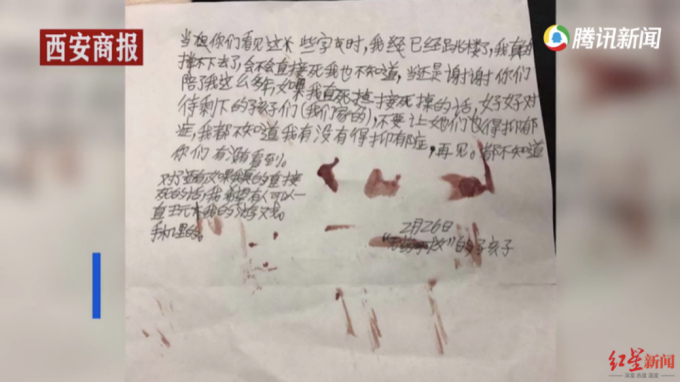 西安商报
腾讯新闻
当你们看见这些字时,我经已经跳楼了,我真的
撑不下去了会不会直接死我也不知道,当还是谢谢你们
陪了我这么多年,如果我直接死掉的话,好好对
待剩下的孩子们(我们宿的),不要让她们也得抑郁
症,我都不知道我有没有得抑郁症,再见。都不知道
你们有没有看到。
对了还有如果我真的直接
死的话,我希望有人可以一
直玩我的游戏。
手机里的。
2月26日
的孩子
红星新闻